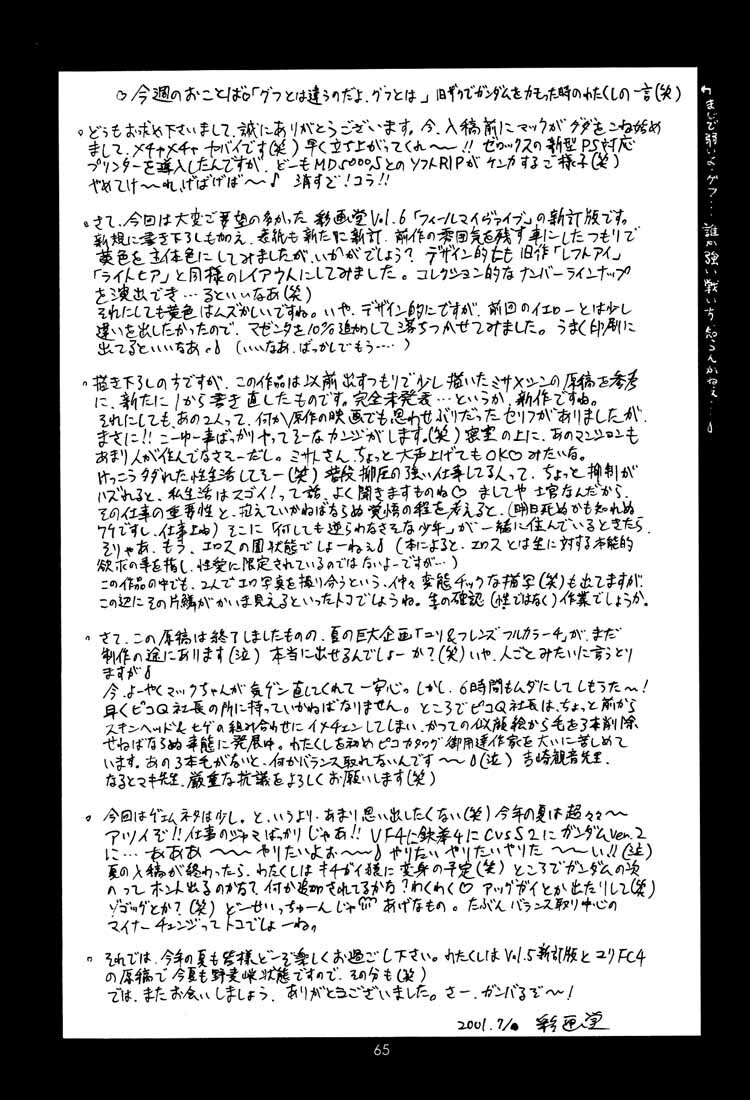 ♡今週のおことば♡「グフとは違うのだよ、グフとは」旧ザクでガンダムをカモった時のわたくしの一言(笑)
。どうもお求め下さいまして、誠にありがとうございます。今、入稿前にマックがグダをこね始め
まして、メチャメチャ ヤバイです(笑)早く立ち上がってくれ〜!! ゼロックスの新型PS対応
プリンターを導入したんですが、どーもMD5000,5とのソフトRIPがケンカするご様子(笑)
やめてけ〜れ、げばげば〜♪ 消すど!コラ!!
。さて、今回は大変ご要望の多かった 彩画堂Vol.6「フィールマイヴァイブ」の新訂版です。
新規に書き下ろしも加え、表紙も新たに新訂、前作の雰囲気を残す事にしたつもりで
黄色を主体色にしてみましたが、いかがでしょう? デザイン的にも旧作「レフトアイ」
「ライトヒア」と同様のレイアウトにしてみました。コレクション的なナンバーラインナップ
を演出でき…るといいなあ(笑)
それにしても黄色はムズかしいですね。いや、デザイン的にですが、前回のイエローとは少し
違いを出したかったので、マゼンタを10%追加して落ちつかせてみました。うまく印刷に
出てるといいなあ。♪ (いいなあ、ばっかしでもう‥‥)
。描き下ろしのちですが、この作品は以前出すつもりで少し描いたミサ×シンの原稿を参考
に、新たに1から書き直したものです。完全未発表…というか、新作ですね。
それにしても、あの2人って、何か原作の映画でも思わせぶりだったセリフがありましたが、
まさに!! こーゆー事ばっかりヤってそーなカンジがします。(笑)密室の上に、あのマンションも
あまり人が住んでなさそーだし。ミサトさん、ちょっと大声上げてもOK♡みたいな。
けっこうタダれた性生活してそー(笑)普段抑圧の強い仕事してる人って、ちょっと抑制が
ハズれると、私生活はスゴイ!って話、よく聞きますものね♡ ましてや士官なんだから、
その仕事の重要性と、抱えていかねばならぬ覚悟の程を考えると、(明日死ぬかも知れぬ
ワケですし、仕事上ね)そこに「何しても逆らわなさそな少年」が一緒に住んでいるときたら、
そりゃあ、もう、エロスの園状態でしょーねぇ♪(本によると、エロスとは生に対する本能的
欲求の事を指し、性愛に限定されているのではないよーですが…)
この作品の中でも、2人でエロ写真を撮り合うという、仲々変態チックな描写(笑)も出てますが、
この辺にその片鱗がかいま見えるといったトコでしょうね。生の確認(性ではなく)作業でしょうか。
。さて、この原稿は終了しましたものの、夏の巨大企画「ユリ&フレンズフルカラー4」が、まだ
制作の途にあります(泣)本当に出せるんでしょーか?(笑)いや、人ごとみたいに言うとり
ますが♪
今、よーやくマックちゃんが気ゲン直してくれて一安心。しかし、6時間もムダにしてしもうた〜!
早くピコQ社長の所に持っていかねばなりません。ところでピコQ社長は、ちょっと前から
スキンヘッド&ヒゲの組み合わせにイメチェンしてしまい、かつての似顔絵から毛を3本削除
せねばならぬ事態に発展中。わたくしを初めピコカタログ御用達作家を大いに苦しめて
います。あの3本毛がないと、何かバランス取れないんです〜♪(泣) 吉崎観音先生、
なるとマキ先生、厳重な抗議をよろしくお願いします(笑)
。今回はゲエムネタは少し。と、いうより、あまり思い出したくない(笑)今年の夏は超々々〜
アツイぞ!!仕事のジャマばっかりじゃあ!! VF4に鉄拳4にCVSS2にガンダムver.2
に…ああああ〜〜やりたいよお〜〜♪やりたいやりたいやりた〜〜い!!(泣)
夏の入稿が終わったら、わたくしはキチガイ猿に変身の予定(笑)ところでガンダムの次
のってホント出るのかな?何か追加されてるかな?わくわく♡ アッグガイとか出たりして(笑)
ゾゴックとか?(笑)どーせいっちゅーんじゃあげなもの。たぶんバランス取り中心の
マイナーチェンジってトコでしょーね。
。それでは、今年の夏も皆様どーぞ楽しくお過ごし下さい。わたくしはVol.5新訂版とユリFC4
の原稿で今夏も野麦峠状態ですので、その分も(笑)
では、またお会いしましょう、ありがとうございました。さー、ガンバるぞ〜!
2001.7/. 彩画堂
まじで弱いよ、グフ…。誰か強い戦い方 知らんかねぇ…♪
65